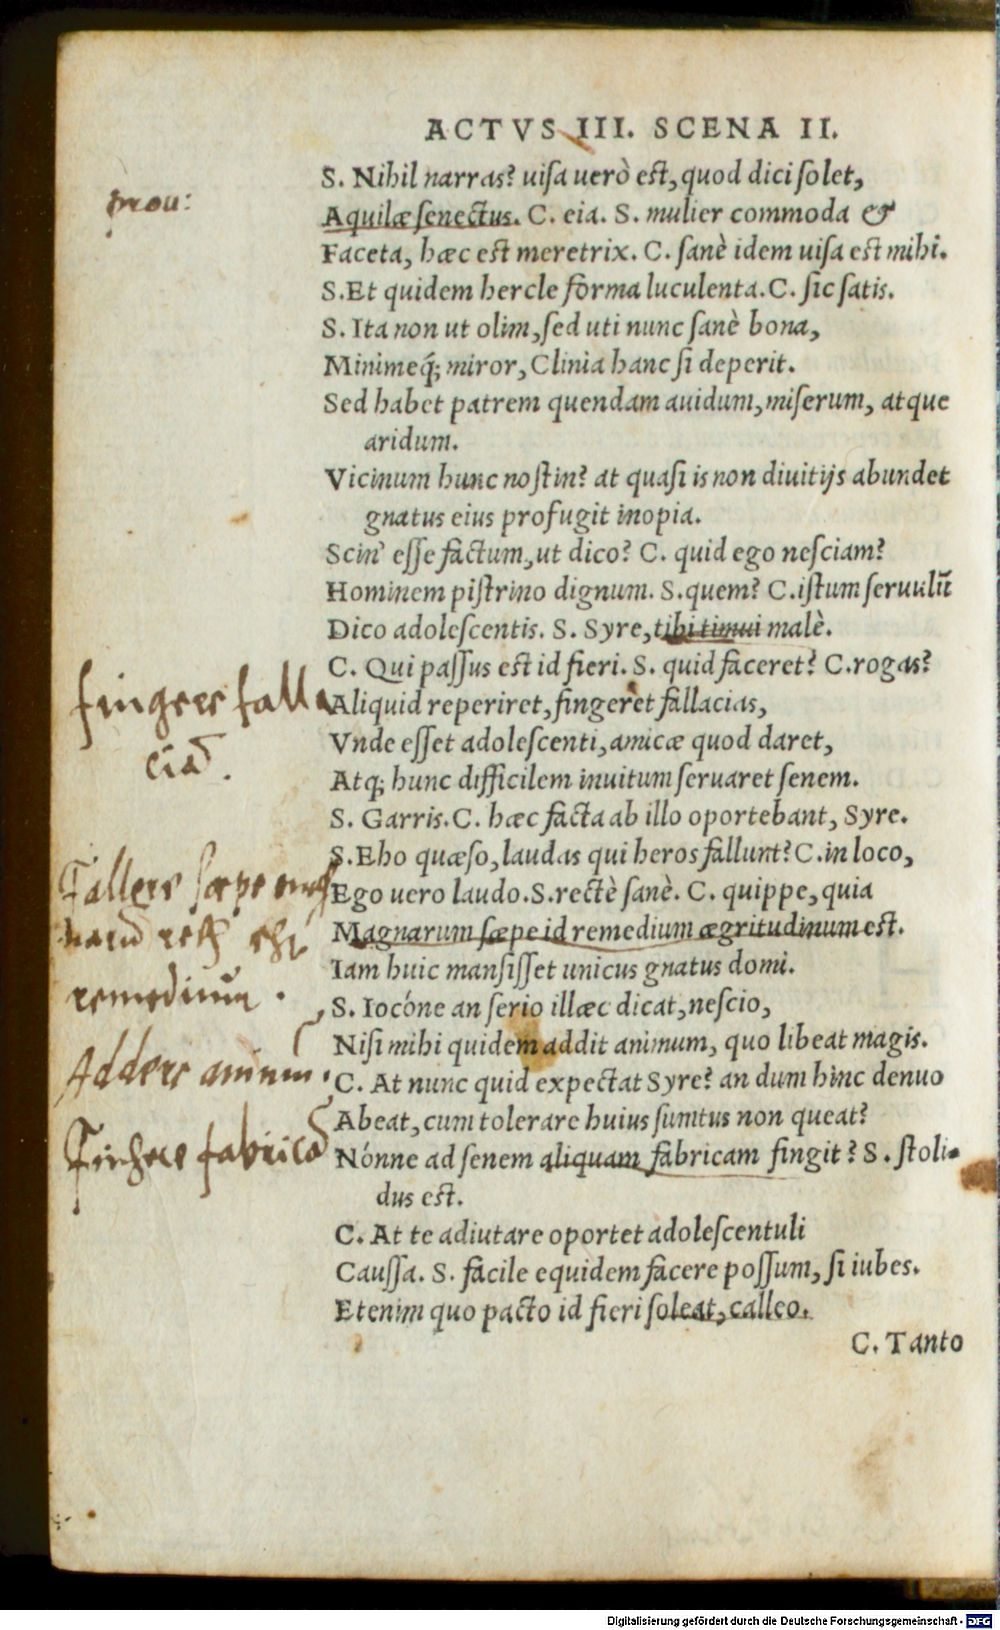 ACTVS III. SCENA II.
S. Nihil narras? uisa uerò est, quod dici solet,
prou:
Aquilæ senectus. C. eia. S. mulier commoda &
Faceta, hæc est meretrix. C. sanè idem uisa est mihi.
S. Et quidem hercle forma luculenta. C. sic satis.
S. Ita non ut olim, sed uti nunc sanè bona,
Minimeq́; miror, Clinia hanc si deperit.
Sed habet patrem quendam auidum, miserum, atque
aridum.
Vicinum hunc nostin? at quasi is non diuitijs abundet
gnatus eius profugit inopia.
Scin' esse factum, ut dico? C. quid ego nesciam?
Hominem pistrino dignum. S. quem? C. istum seruulũ
Dico adolescentis. S. Syre, tibi timui malè.
C. Qui passus est id fieri. S. quid faceret? C. rogas?
fingere falla
Aliquid reperiret, fingeret fallacias,
Vnde esset adolescenti, amicæ quod daret,
ciã.
Atq; hunc difficilem inuitum seruaret senem.
S. Garris. C. hæc facta ab illo oportebant, Syre.
S. Eho quæso, laudas qui heros fallunt? C. in loco,
Fallere sæpe
Ego uero laudo. S. rectè sanè. C. quippe, quia
Magnarum sæpe id remedium ægritudinum est.
Iam huic mansisset unicus gnatus domi.
remedium.
S. Iocóne an serio illæc dicat, nescio,
Nisi mihi quidem addit animum, quo libeat magis.
Addere animum.
C. At nunc quid expectat Syre? an dum hinc denuo
Abeat, cum tolerare huius sumtus non queat?
fabricã
Nónne ad senem aliquam fabricam fingit? S. stoli-
dus est.
C. At te adiutare oportet adolescentuli
Caussa. S. facile equidem facere possum, si iubes.
Etenim quo pacto id fieri soleat, calleo.
C. Tanto
Digitalisierung gefördert durch die Deutsche Forschungsgemeinschaft - DFG